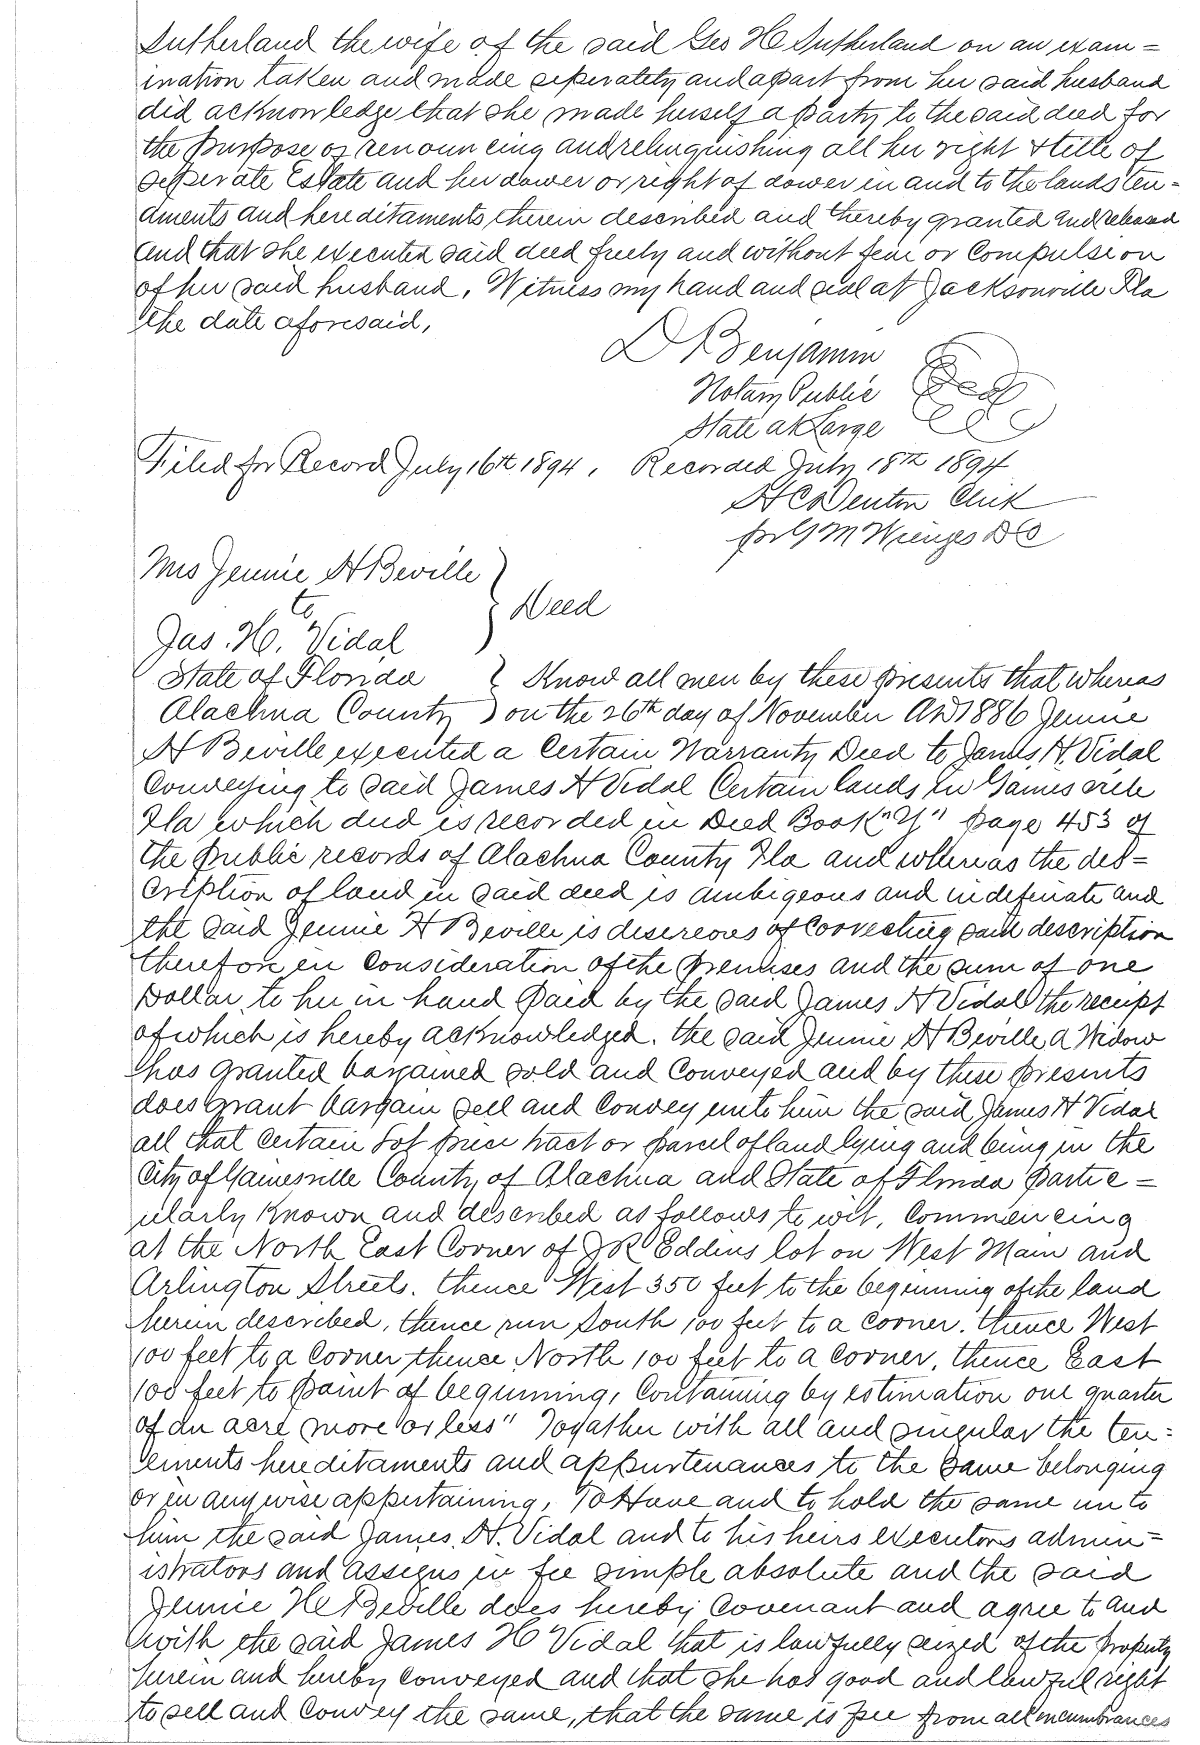 Sutherland the wife of the said Geo H Sutherland on an exam=
ination taken and made seperately and apart from her said husband
did acknowledge that she made herself a party to the said deed for
the purpose of renouncing and relinquishing all her right & title of
seperate Estate and her dower or right of dower in and to the lands ten=
aments and hereditaments therein described and thereby granted and released
and that she executed said deed freely and without fear or compulsion
of her said husband. Witness my hand and seal at Jacksonville Fla
the date aforesaid,
D Benjamin
Notary Public Seal
State at Large
Filed for Record July 16th 1894. Recorded July 18th 1894
H C Denton Clerk
pr G M Wienges D C
Mrs Jennie H Beville
to } Deed
Jas. H. Vidal
State of Florida } Know all men by these presents that whereas
Alachua County } on the 26th day of November AD 1886 Jennie
H Beville executed a Certain Warranty Deed to James H. Vidal
Conveying to said James H Vidal Certain lands in Gainesville
Fla which deed is recorded in Deed Book "Y" page 453 of
the public records of Alachua County Fla and whereas the des=
cription of land in said deed is ambigeous and indefinate and
the said Jennie H Beville is desireous of Correcting said description
therefor in Consideration of the premises and the sum of one
Dollar to her in hand paid by the said James H Vidal the receipt
of which is hereby acknowledged. the said Jennie H Beville a Widow
has granted bargained sold and Conveyed and by these presents
does grant bargain sell and Convey unto him the said James H Vidal
all that Certain Lot piece tract or parcel of land lying and being in the
City of Gainesville County of Alachua and State of Florida partic=
ularly Known and described as follows to wit, Commencing
at the North East Corner of J R Eddins lot on West Main and
Arlington Streets. thence West 350 feet to the beginning of the land
herein described, thence run South 100 feet to a Corner. thence West
100 feet to a Corner, thence North 100 feet to a Corner, thence East
100 feet to paint of beginning, Containing by estimation one quarter
of an acre more or less" Togather with all and singular the ten=
ements hereditaments and appurtenances to the same belonging
or in any wise appertaining, To Have and to hold the same unto
him the said James. H. Vidal and to his heirs executors admin=
istrators and assigns in fee simple absolute and the said
Jennie H Beville does hereby Covenant and agree to and
with the said James H Vidal that is lawfully seized of the property
herein and hereby conveyed and that she has good and lawful right
to sell and Convey the same, that the same is free from all incumbrances